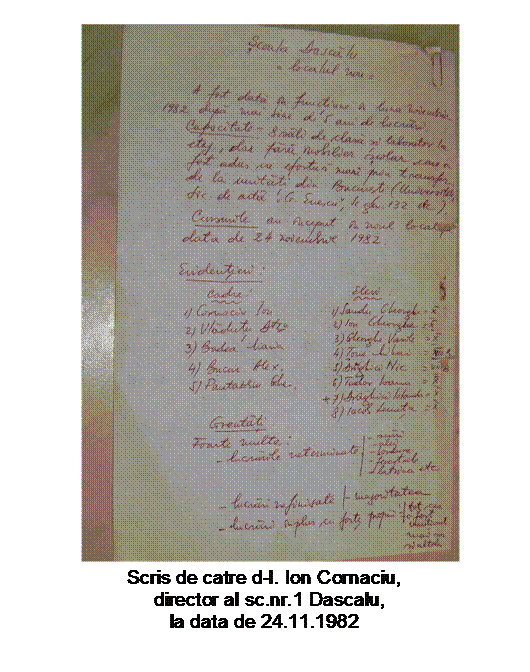 Școala Dascălu
- localul nou -
A fost dată în funcțiune în luna noiembrie
1982 după mai bine de 5 ani de lucrări.
Capacitate - 8 săli de clasă și laborator la
etaj, dar fără mobilier școlar care a
fost adus cu eforturi mari prin transfer
de la unități din București (Universitate,
lic. de artă "G. Enescu", lc gen. 132 etc.).
Cursurile au început în noul local pe
data de 24 noiembrie 1982
Evidențieri:
Cadre:
1) Cornaciu Ion
2) Vlăduțu
3) Budea Maria
4) Bucur Alex.
5) Pantazescu
Elevi
1) Sandu Gheorghe - X
2) Ion Gheorghe - X
3) Gheorghe Vasile - X
4) Toma Mihai
5) Drăghici Nic.
6) Tudor Ioana - X
+ 7) Drăghici
8) Iacob - X
Greutăți
Foarte multe:
- lucrările neterminate
- latrina etc.
- lucrări nefinisate - majoritatea
- lucrări în plus cu forțe proprii
Scris de catre d-l. Ion Cornaciu,
director al sc.nr.1 Dascalu,
la data de 24.11.1982